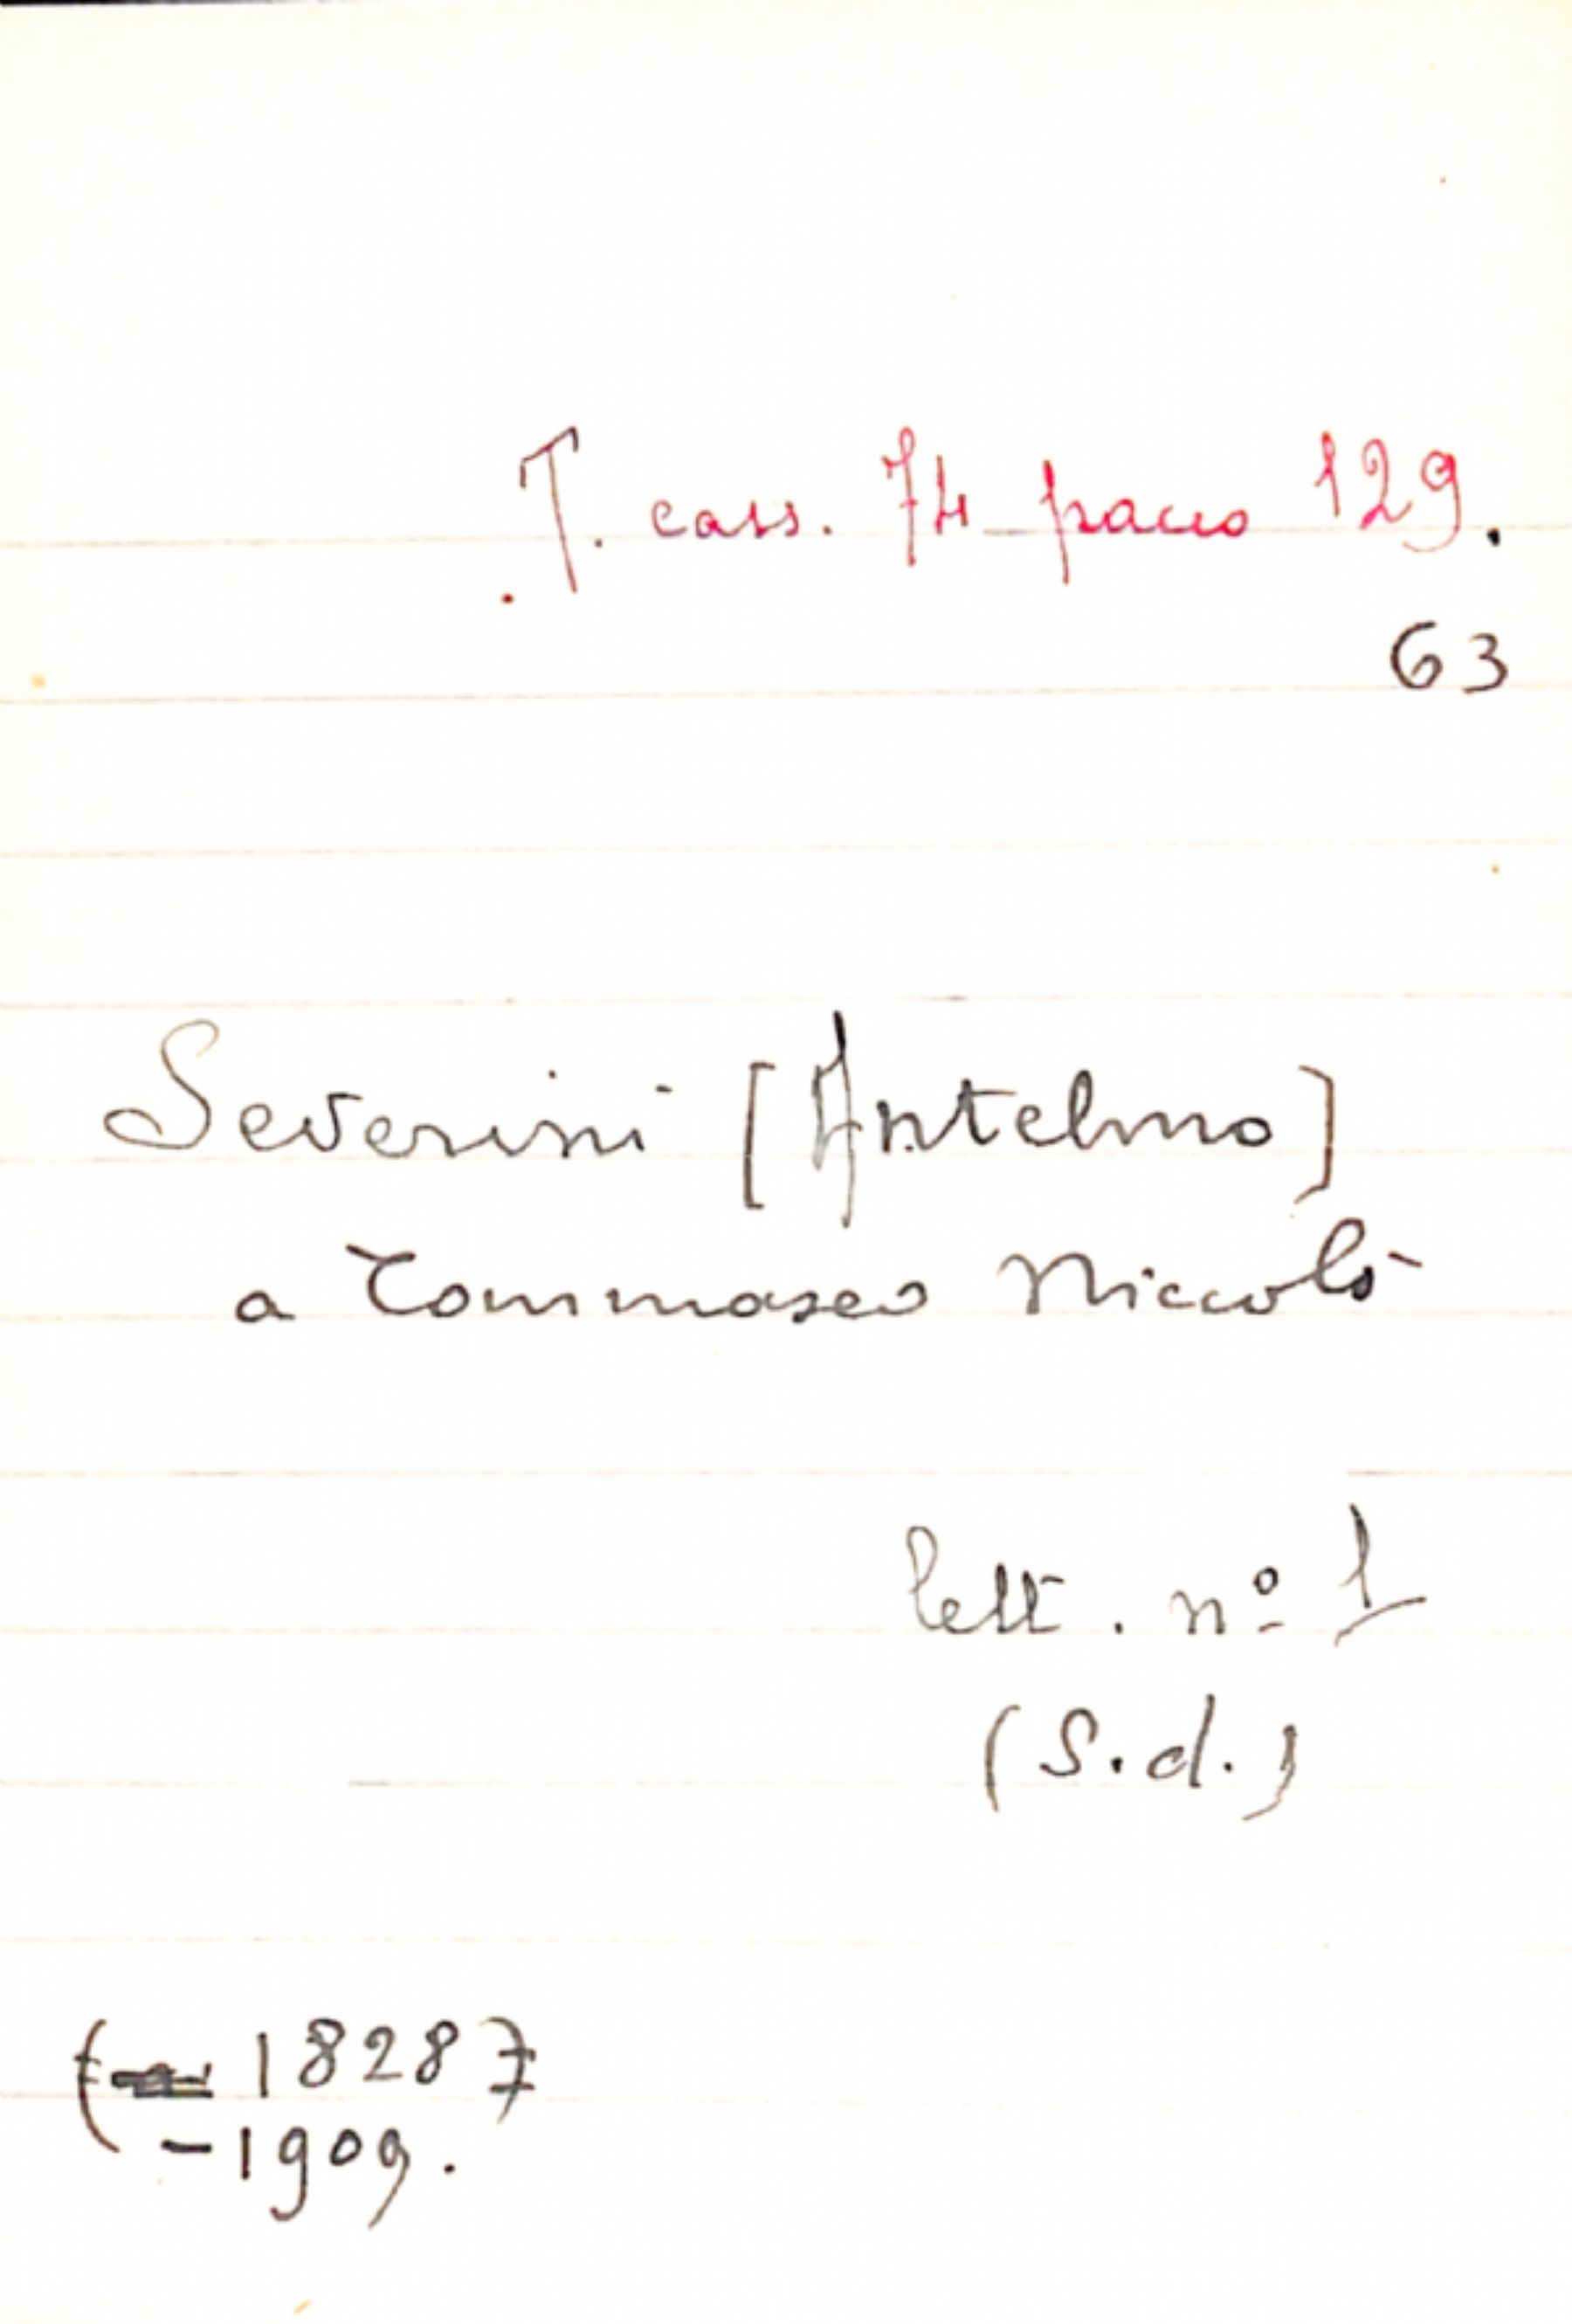 T. cass. 74 pacco 129.
63
Severini [Antelmo]
a Tommaseo Niccolò
lett. nº 1
(S.d.)
( 1828)
-1909.